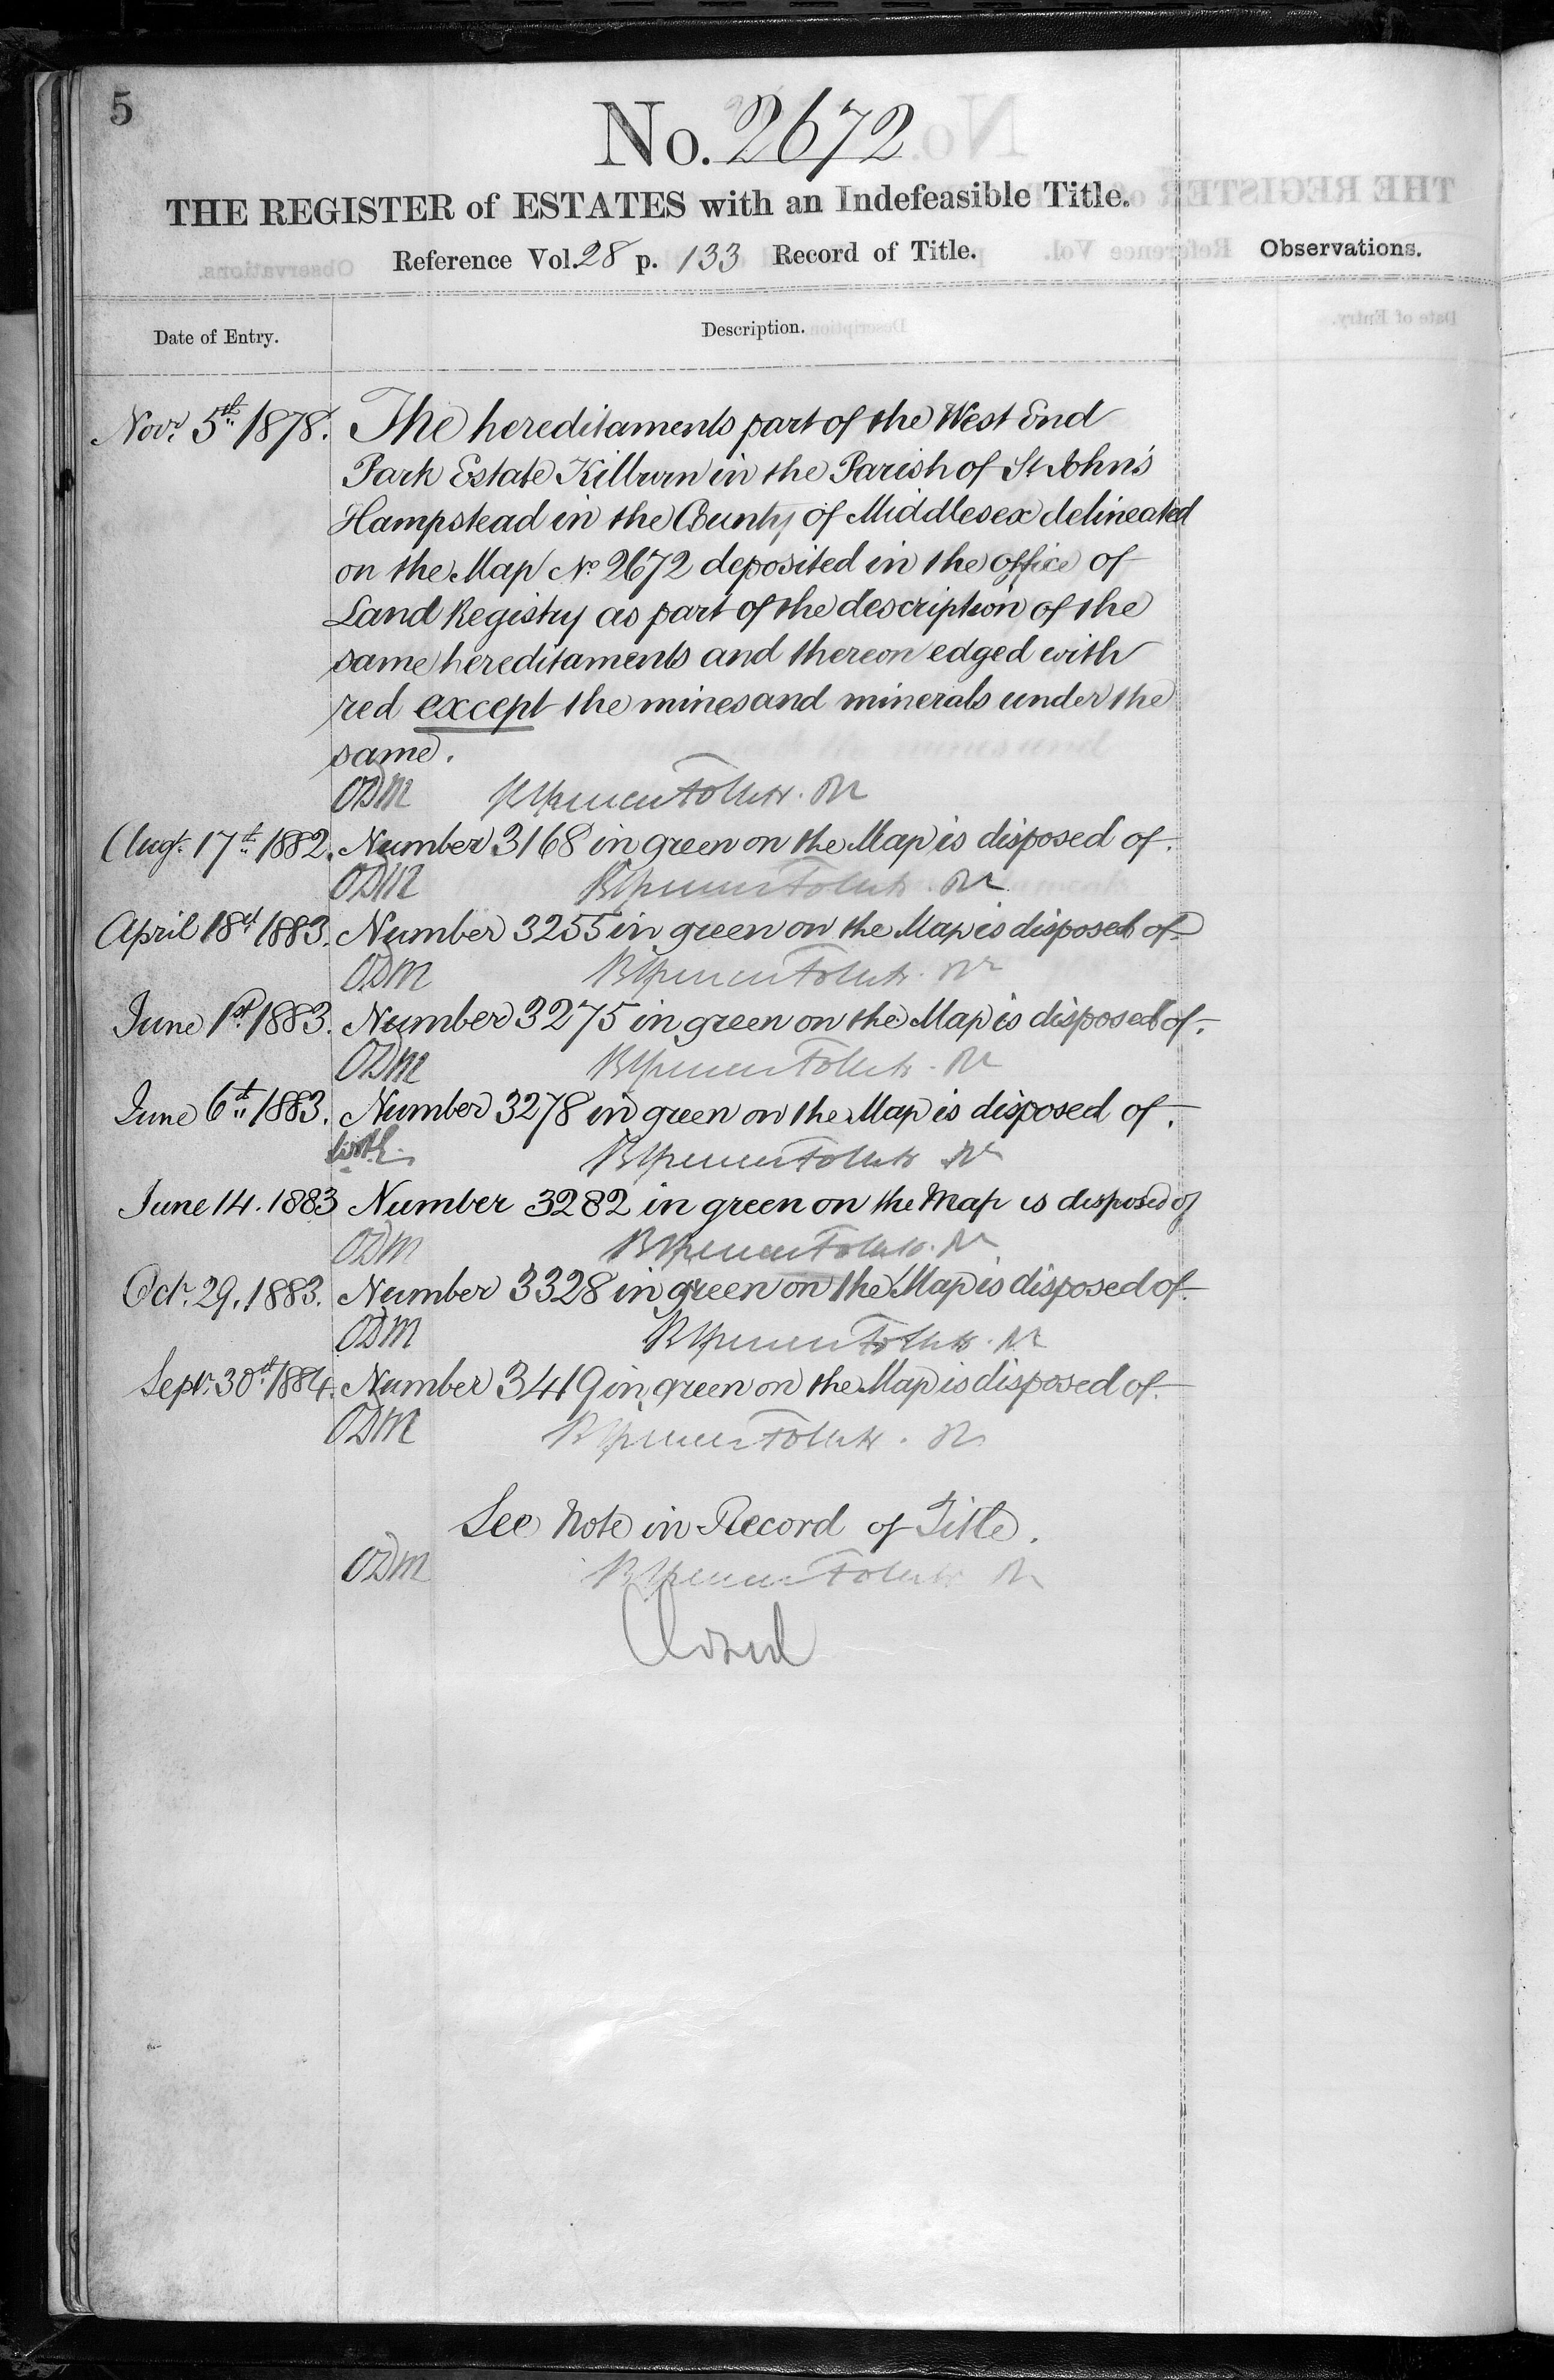 5
No. 2672
THE REGISTER of ESTATES with an Indefeasible Title.
Reference Vol. 28 p. 133 Record of Title.
Observations.
Date of Entry.
Description.
Novr. 5th 1878. The hereditaments part of the West End
Park Estate Kilburn in the Parish of St John's
Hampstead in the County of Middlesex delineated
on the Map No 2672 deposited in the office of
Land Registry as part of the description of the
same hereditaments and thereon edged with
red except the mines and minerals under the
same.
ODM
Augt. 17th 1882. Number 3168 in green on the Map is disposed of.
ODM
April 18th 1883. Number 3255 in green on the Map is disposed of
ODM
June 1st 1883. Number 3275 in green on the Map is disposed of.
ODM
June 6th 1883. Number 3278 in green on the Map is disposed of.
June 14. 1883 Number 3282 in green on the Map is disposed of
ODM
Octr. 29. 1883. Number 3328 in green on the Map is disposed of.
ODM
Septr. 30th 1884. Number 3419 in green on the Map is disposed of.
ODM
See Note in Record of Title.
ODM
Closed